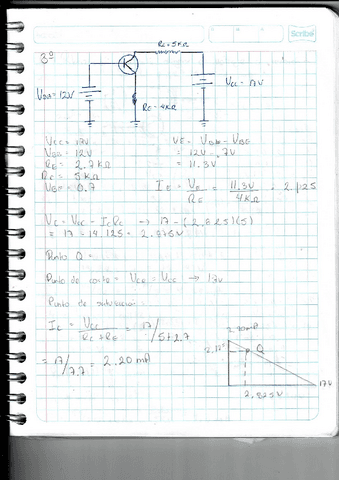 Scribe
3º
Rc=5KΩ
VBB= 12V
Vcc= 17V
RE= 4KΩ
Vcc= 17V
VBB= 12V
RE= 2.7KΩ
RC= 5KΩ
VBE= 0.7
VE= VBB - VBE
= 12V .7V
= 11.3V
IE= VE/RE = 11.3V/4KΩ = 2.825
Vc= Vcc - IcRc → 17 - (2.825)(5)
= 17 - 14.125 = 2.875V
Punto Q =
Punto de corte = VCE = Vcc → 17v
Punto de saturación:
Ic= Vcc/RC+RE = 17/5+2.7
= 17/7.7 = 2.20 mA
2.20mA
Q
17V
2.825V